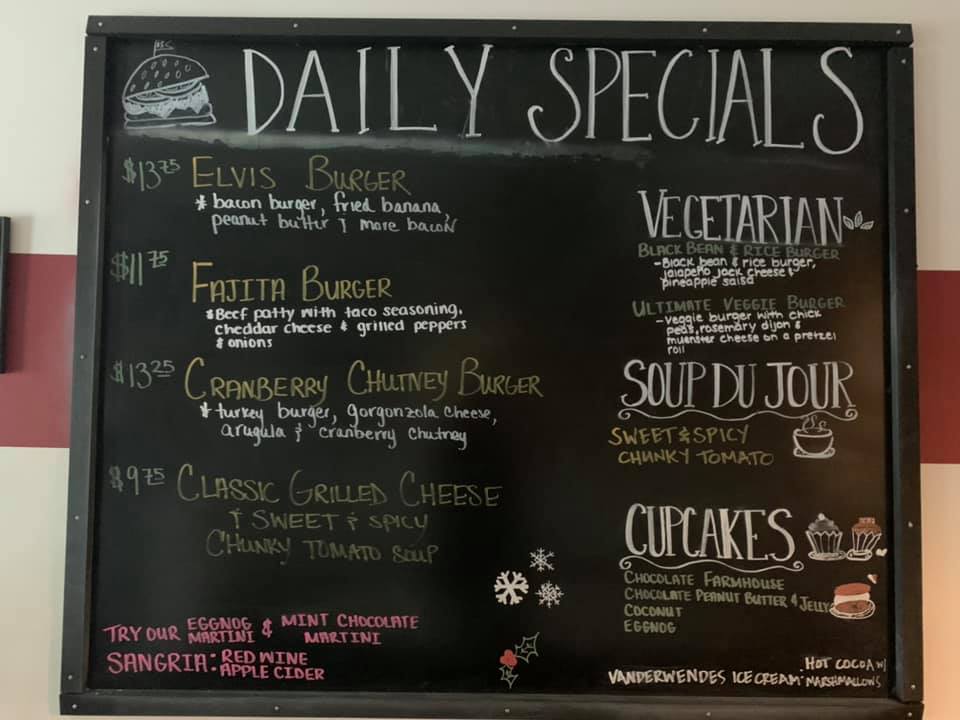 DAILY SPECIALS
$13.75 ELVIS BURGER
* bacon burger, fried banana,
peanut butter & more bacon
$11.75
FAJITA BURGER
*Beef patty with taco seasoning,
cheddar cheese & grilled peppers
& onions
$13.25 CRANBERRY CHUTNEY BURGER
* turkey burger, gorgonzola cheese,
arugula & cranberry chutney
$9.75 CLASSIC GRILLED CHEESE
& SWEET & SPICY
CHUNKY TOMATO SOUP
TRY OUR EGGNOG MARTINI & MINT CHOCOLATE MARTINI
SANGRIA: RED WINE
APPLE CIDER
VEGETARIAN
BLACK BEAN & RICE BURGER
-Black bean & rice burger,
jalapeño jack cheese &
pineapple salsa
ULTIMATE VEGGIE BURGER
-veggie burger with chick
peas, rosemary dijon &
muenster cheese on a pretzel
roll
SOUP DU JOUR
SWEET & SPICY
CHUNKY TOMATO
CUPCAKES
CHOCOLATE FARMHOUSE
CHOCOLATE PEANUT BUTTER & JELLY
COCONUT
EGGNOG
VANDERWENDES ICE CREAM: HOT COCOA W/
MARSHMALLOWS